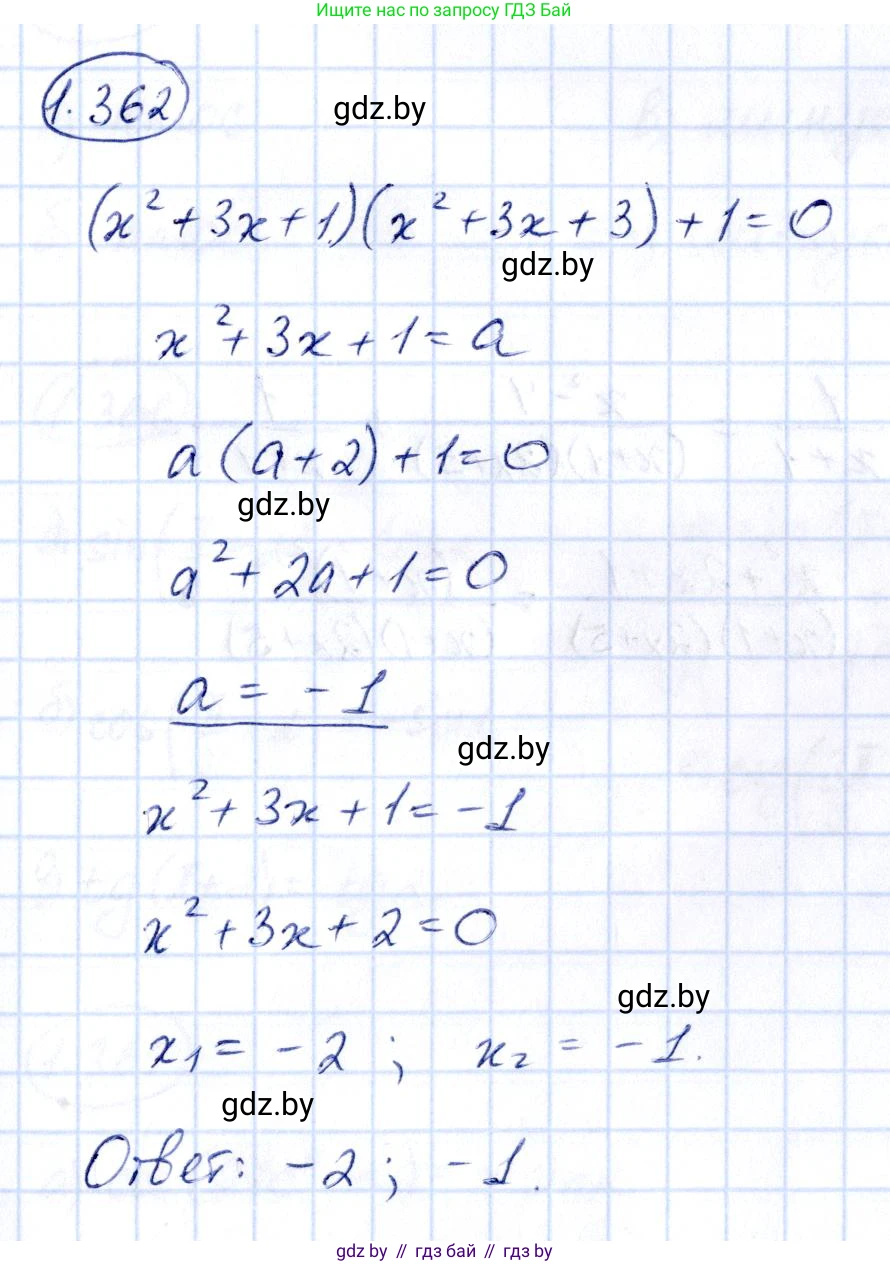 Ищите нас по запросу ГДЗ Бай
1.362
gdz.by
(x² + 3x + 1)(x² + 3x + 3) + 1 = 0
gdz.by
x² + 3x + 1 = a
a(a + 2) + 1 = 0
gdz.by
a² + 2a + 1 = 0
a = -1
gdz.by
x² + 3x + 1 = -1
x² + 3x + 2 = 0
gdz.by
x₁ = -2; x₂ = -1.
gdz.by
Ответ: -2; -1.
gdz.by // гдз бай // гдз by